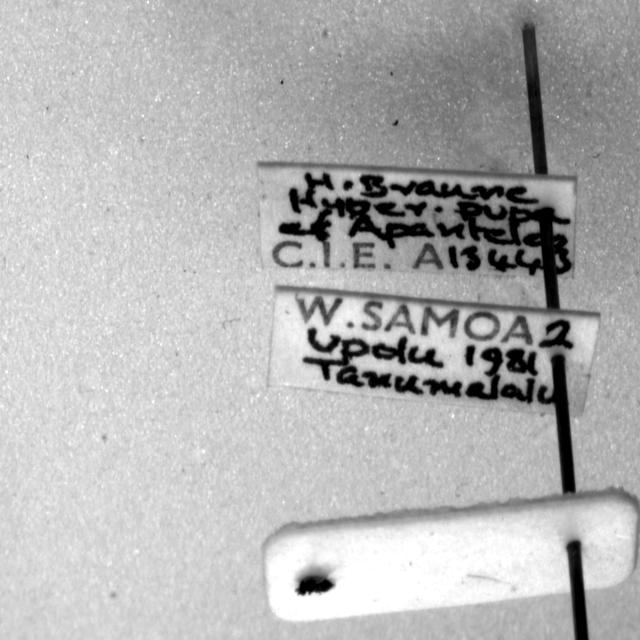 H. Braune
Hyper. Pupa
of Apanteles
C.I.E. A13443
W.SAMOA 2
Upolu 1981
Tanumalala